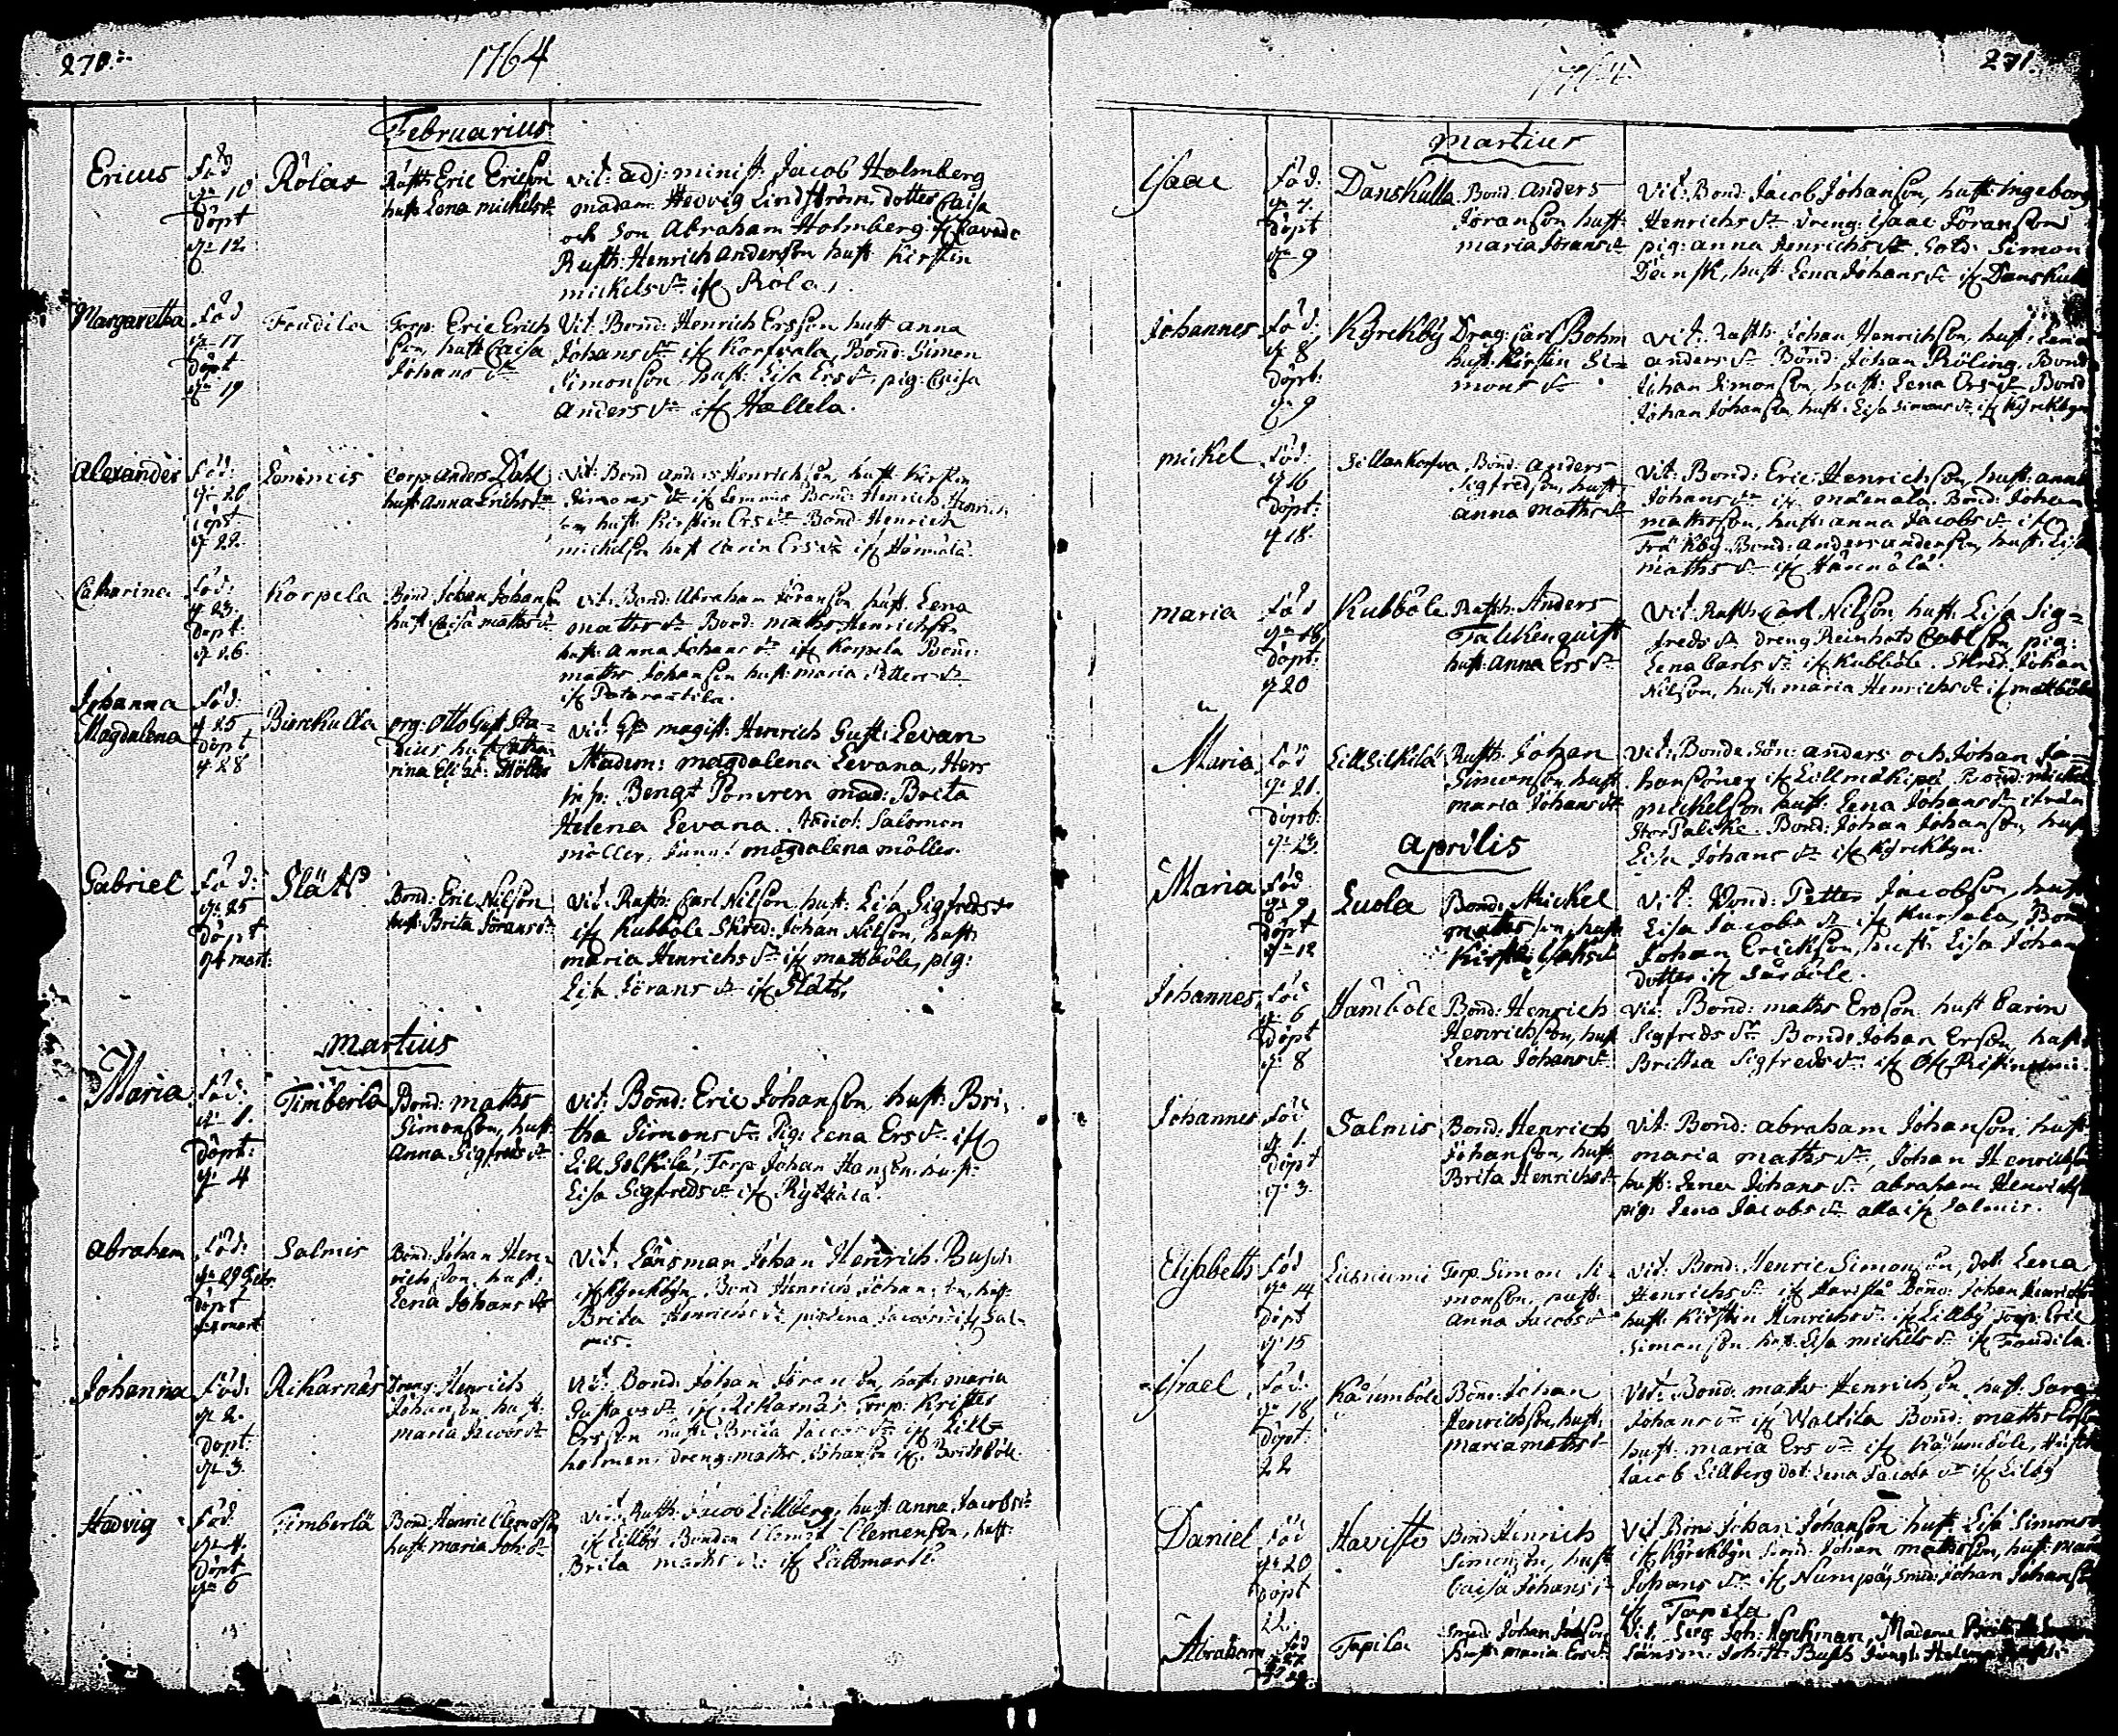 270.
1764
Februarius
Ericus
Föd
d. 10
döpt
d. 12
Rölas
Rusth: Eric Ericson
hust: Lena mickelsdr
Vit: adj: minist: Jacob Holmberg
madam Hedvig Lindström, dotter Caisa
och Son Abraham Holmberg
Rusth: Henrich Anderson hust: Kirstin
mickels dr if Röla,
Margaretha
Föd
d. 17
döpt
d. 19
Fondila
Torp: Eric Erich
son, hust Caisa
Johans dr
Vit: Bond: Henrich Ersson hust anna
Johans dr if Korfvala, Bond: Simon
Simonson, hust: Lisa Ers dr, pig: Caisa
anders dr if Hallela.
Alexander
Föd:
d. 20
döpt
d. 22
Corp anders Dahl
hust: Anna Erichsdr
Vit: Bond anders Henrichson, hust: Kirstin
Simons dr Bond: Henrich Henrich
son hust: Kirstin Ers dr Bond: Henrich
mickelson hust Carin Ers dr
Catharina
Föd:
d. 23
döpt
d. 26
Korpela
Bond: Johan Johanson
hust: Caisa maths dr
Vit: Bond: Abraham Jöranson, hust: Lena
matts dr Bond: maths Henrichson
hust: Anna Johans dr if Korpela Bond:
maths Johanson hust: maria Petters dr
Johanna
Magdalena
Föd:
d. 25
döpt
d. 28
Bierckulla
org: Otto Gust: Sta-
hust: Catha-
rina Eliz: Möller
Vit: magist: Henrich Gust: Levan
Madam: magdalena Levana, Herr
insp: Bengt Ponvren mad: Brita
Helena Levana. Studios: Salomon
möller, magdalena möller.
Gabriel
Föd:
d. 25
döpt
d. 4 mart:
Slätt
Bond: Eric Nilson
hust: Brita Jörans dr
Vit: Rusth: Carl Nilson, hust: Lisa Sigfreds dr
if Kubbole Skred: Johan Nilson, hust:
maria Henrichs dr if mattböle, pig:
Lisa Jörans dr if Slätt.
Martius
Maria
Föd:
d. 1.
döpt:
d. 4
Timberla
Bond: maths
Simonson, hust:
Anna Sigfreds dr
Vit: Bond: Eric Johanson, hust: Bri-
tha Simons dr Pig: Lena Ers dr if
Lill Solkila, Torp: Johan Hanson, hust:
Lisa Sigfreds dr if Ryttälä.
Abraham
Föd:
d. 29 Febr.
döpt
mart
Salmis
Bond: Johan Hen-
richson, hust:
Lena Johans dr
Vit: Länsman Johan Henrich Busch
if Kyrckbyn, Bond Henrich Johanson, hust:
Brita Henrichs dr pig Lena Jacobs dr if Sal-
mis.
Johanna
Föd:
d. 2.
döpt:
d. 3.
Rikarnäs
Dreng: Henrich
Johanson, hust:
maria Jacobs dr
Vit: Bond: Johan Jöranson, hust: maria
Gustavs dr if Rikarnäs Torp: Krister
Ersson hust: Brita Jacobs dr if Lill-
holmen: Dreng: maths Johanson if Bridsböle
Hedvig
Föd:
d. 4.
döpt
d. 6
Timberla
Bond: Henric Clemeson
hust: maria Joh: dr
Vit: Rusth: Jacob Lillberg, hust: Anna Jacobs dr
if Lillby, Bonden Clemet Clemenson, hust:
Brita maths dr: if Lillmarks.
271.
1764.
Martius
Isaac
Föd:
d. 7.
döpt
d. 9
Danskulla
Bond: Anders
Jöranson hust:
maria Jörans dr
Vit: Bond: Jacob Johanson, hust: Ingeborg
Henrichs dr Dreng: Isaac Jöranson
pig: anna Henrichs dr Sold: Simon
Dansk, hust: Lena Johans dr if Danskulla
Johannes
Föd:
d. 8
döpt:
d. 9
Kyrckby
Drag: Carl Bohm
hust: Kirstin Si-
mons dr
Vit: Rusth: Johan Henrichson, hust: Lena
anders dr Bond: Johan Röling, Bond:
Johan Simonson, hust: Lena Ers dr Bond
Johan Johanson, hust: Lisa Simons dr if Kyrckbyn
mickel
Föd:
d. 16
döpt:
d. 18.
Bond: Anders
Sigfredson, hust:
Anna Maths dr
Vit: Bond: Eric Henrichson, hust: anna
Johans dr Bond: Johan
mathsson, hust: anna Jacobs dr if
Bond: anders anderson, hust: Lisa
maths dr
maria
Föd
d. 18
döpt:
d. 20
Kubböle
Rusth: Anders
Falckenquist
hust: Anna Ers dr
Vit: Rusth: Carl Nilson, hust: Lisa Sig-
freds dr Dreng Reinholt Carlson, pig:
Lena Carls dr if Kubböle. Skred: Johan
Nilson, hust: maria Henrichs dr if mattböle
Maria
Föd
d. 21.
döpt:
d. 23.
Lillsilkilä
Rusth: Johan
Simonson, hust:
maria Johans dr
Vit: Bonde Sön: anders och Johan Jo-
hansöner if Lillmäkipä Bond: mickel
mickelson hust: Lena Johans dr ifrån
Stor Palicke. Bond: Johan Johanson, hust
Lisa Johans dr if Kyrckbyn.
Aprilis
Maria
Föd
d. 9
döpt
d. 12
Luola
Bond: Mickel
mathsson, hust:
Kirstin Isaks dr
Vit: Bond: Petter Jacobson, hust
Lisa Jacobs dr if Kursala, Bond
Johan Erickson, hust: Lisa Johans
dotter if
Johannes
Föd
d. 6
döpt
d. 8
Hämböle
Bond: Henrich
Henrichson, hust
Lena Johans dr
Vit: Bond: maths Ersson hust Carin
Sigfreds dr Bond: Johan Ersson, hust:
Brittha Sigfreds dr
Johannes
Föd
d. 1.
döpt
d. 3.
Salmis
Bond: Henrich
Johanson, hust:
Brita Henrichs dr
Vit: Bond: Abraham Johanson, hust:
maria maths dr, Johan Henrichson
hust: Lena Johans dr abraham Henrichson
pig: Lena Jacobs dr alla if Salmis.
Elisabeth
Föd
d. 14
döpt
d. 15
Lusniemi
Torp: Simon Si-
monson, hust:
Anna Jacobs dr
Vit: Bond: Henric Simonson, dot: Lena
Henrichs dr if Havistå Bond: Johan Henrichson
hust: Kirstin Henrichs dr if Lillby Torp: Eric
Simonson hust: Lisa mickels dr if Fondila.
Israel
Föd:
d. 18
döpt:
22
Kåumböle
Bond: Johan
Henrichson, hust:
maria maths dr
Vit: Bond: maths Henrichson, hust: Sara
Johans dr if Waltila Bond: maths Ersson
hust: maria Ers dr if Kåumböle,
Jacob Lillberg dot: Lena Jacobs dr if Lilby
Daniel
Föd
d. 20
döpt
22.
Havisto
Bond Henrich
Simonson, hust:
Caisa Johans dr
Vit Bond Johan Johanson hust: Lisa Simons dr
if Kyrckbyn Johan mathsson, hust: maria
Johans dr if Numpä, Smed: Johan Johanson
if Tapila
Abraham
föd
d. 27
Tapila
Smed: Johan Johanson
hust: maria Ers dr
Vit, Serg Joh: Forckman, Madame Brita
Länsm: Joh: H: Busch Jungf: Helena